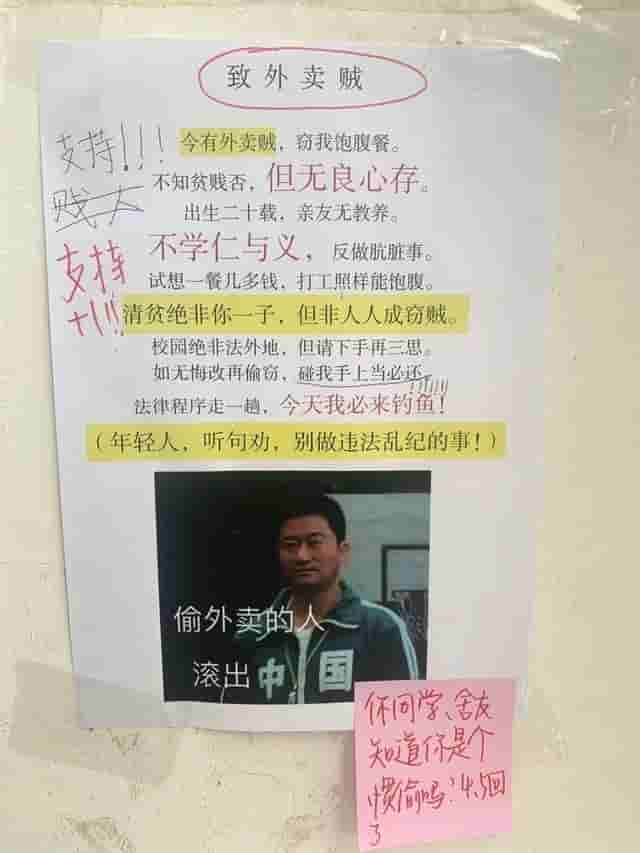 致外卖贼
今有外卖贼，窃我饱腹餐。
不知贫贱否，但无良心存。
出生二十载，亲友无教养。
不学仁与义，反做肮脏事。
试想一餐几多钱，打工照样能饱腹。
清贫绝非你一子，但非人人成窃贼。
校园绝非法外地，但请下手再三思。
如无悔改再偷窃，碰我手上当必还。
法律程序走一趟，今天我必来钓鱼！
（年轻人，听句劝，别做违法乱纪的事！）
支持!!!
贱人
支持
+1!!
偷外卖的人
滚出中国
你同学、舍友
知道你是个
惯偷吗？4.5回
了